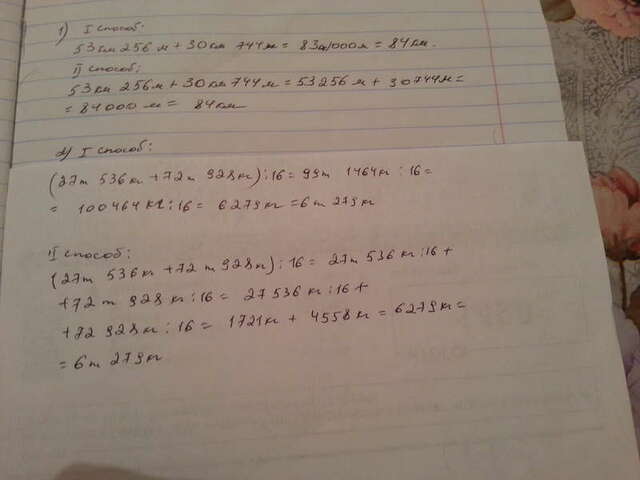 1) I способ:
53 км 256 м + 30 км 744 м = 83 км 1000 м = 84 км.
II способ:
53 км 256 м + 30 км 744 м = 53256 м + 30744 м =
= 84000 м = 84 км
2) I способ:
(27 т 536 кг + 72 т 928 кг) : 16 = 99 т 1464 кг : 16 =
= 100464 кг : 16 = 6279 кг = 6 т 279 кг
II способ:
(27 т 536 кг + 72 т 928 кг) : 16 = 27 т 536 кг : 16 +
+ 72 т 928 кг : 16 = 27536 кг : 16 +
+ 72928 кг : 16 = 1721 кг + 4558 кг = 6279 кг =
= 6 т 279 кг